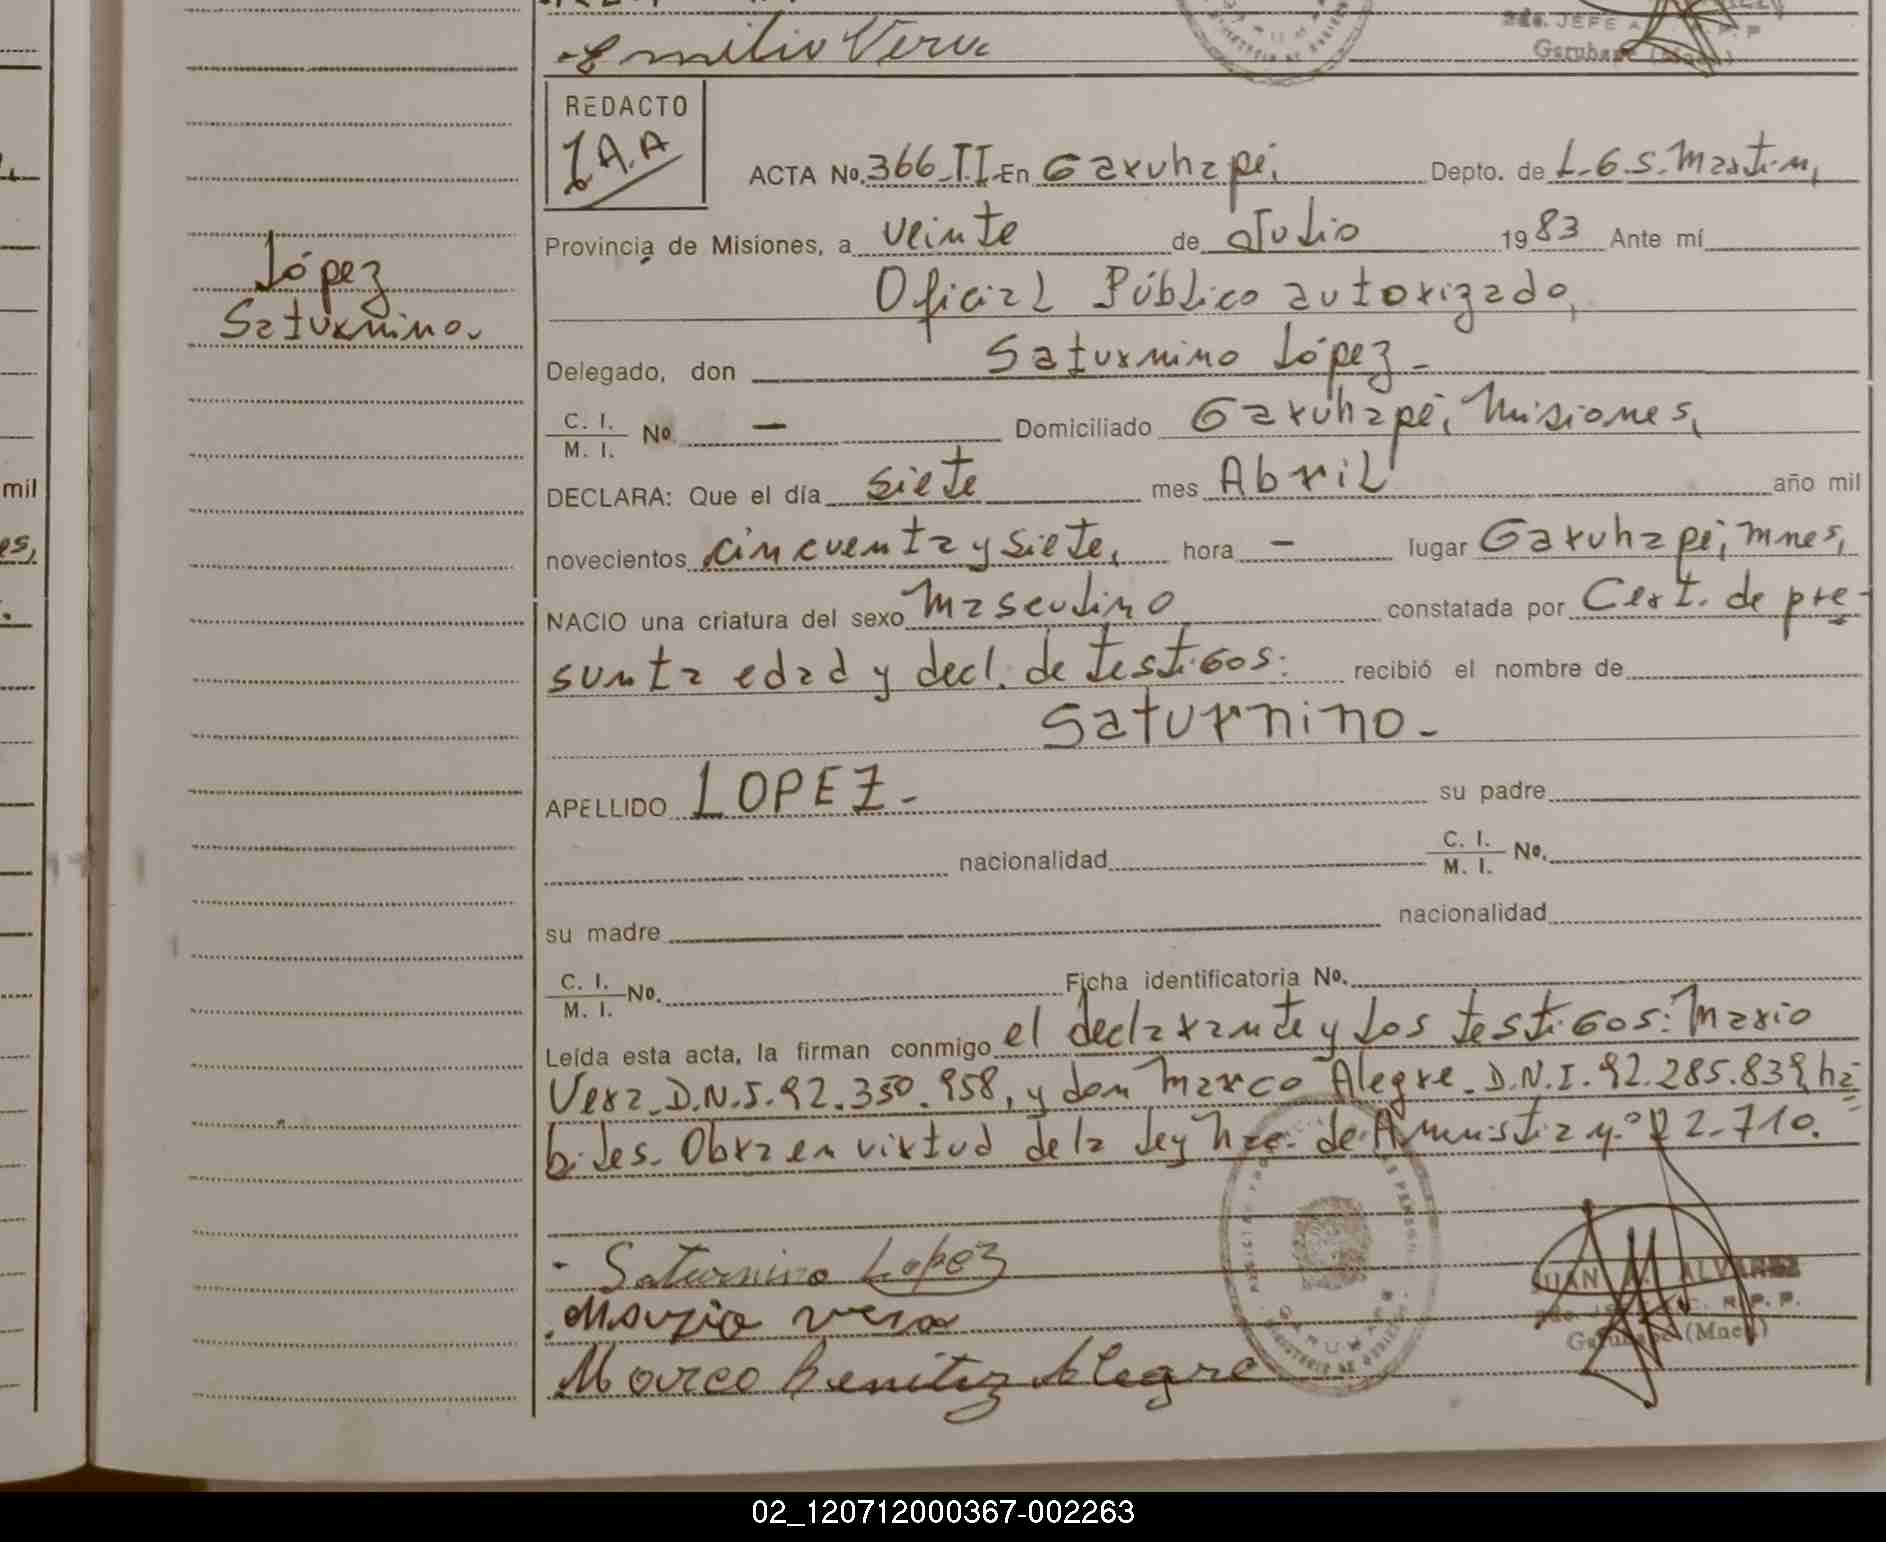 Emilio Vera
JEFE
Garuhapé (Mnes.)
REDACTO
J.A.A
ACTA No. 366-T.II-En Garuhapé, Depto. de L.G.S.Martín,
Provincia de Misiones, a veinte de Julio 1983 Ante mí
Oficial Público autorizado,
López
Saturnino.
Delegado, don Saturnino López-
C. I. / M. I. No - Domiciliado Garuhapé, Misiones,
DECLARA: Que el día siete mes Abril año mil
novecientos cincuenta y siete, hora - lugar Garuhapé, Mnes,
NACIO una criatura del sexo Masculino constatada por Cert. de pre-
sunta edad y decl. de testigos: recibió el nombre de
Saturnino-
APELLIDO LOPEZ- su padre
nacionalidad C. I. / M. I. No.
su madre nacionalidad
C. I. / M. I. No. Ficha identificatoria No.
Leída esta acta, la firman conmigo el declarante y los testigos: Mario
Vera-D.N.I.92.350.958, y don Marco Alegre-D.N.I.92.285.839, há-
biles-Obra en virtud de la ley Nac. de Amnistía n.º 22.710.
- Saturnino Lopez
Marzio vera
Marco Benitez Alegre
JUAN A. ALVAREZ
2do. JEFE R. P. P.
Garuhapé (Mnes.)
mil
es,
02_120712000367-002263